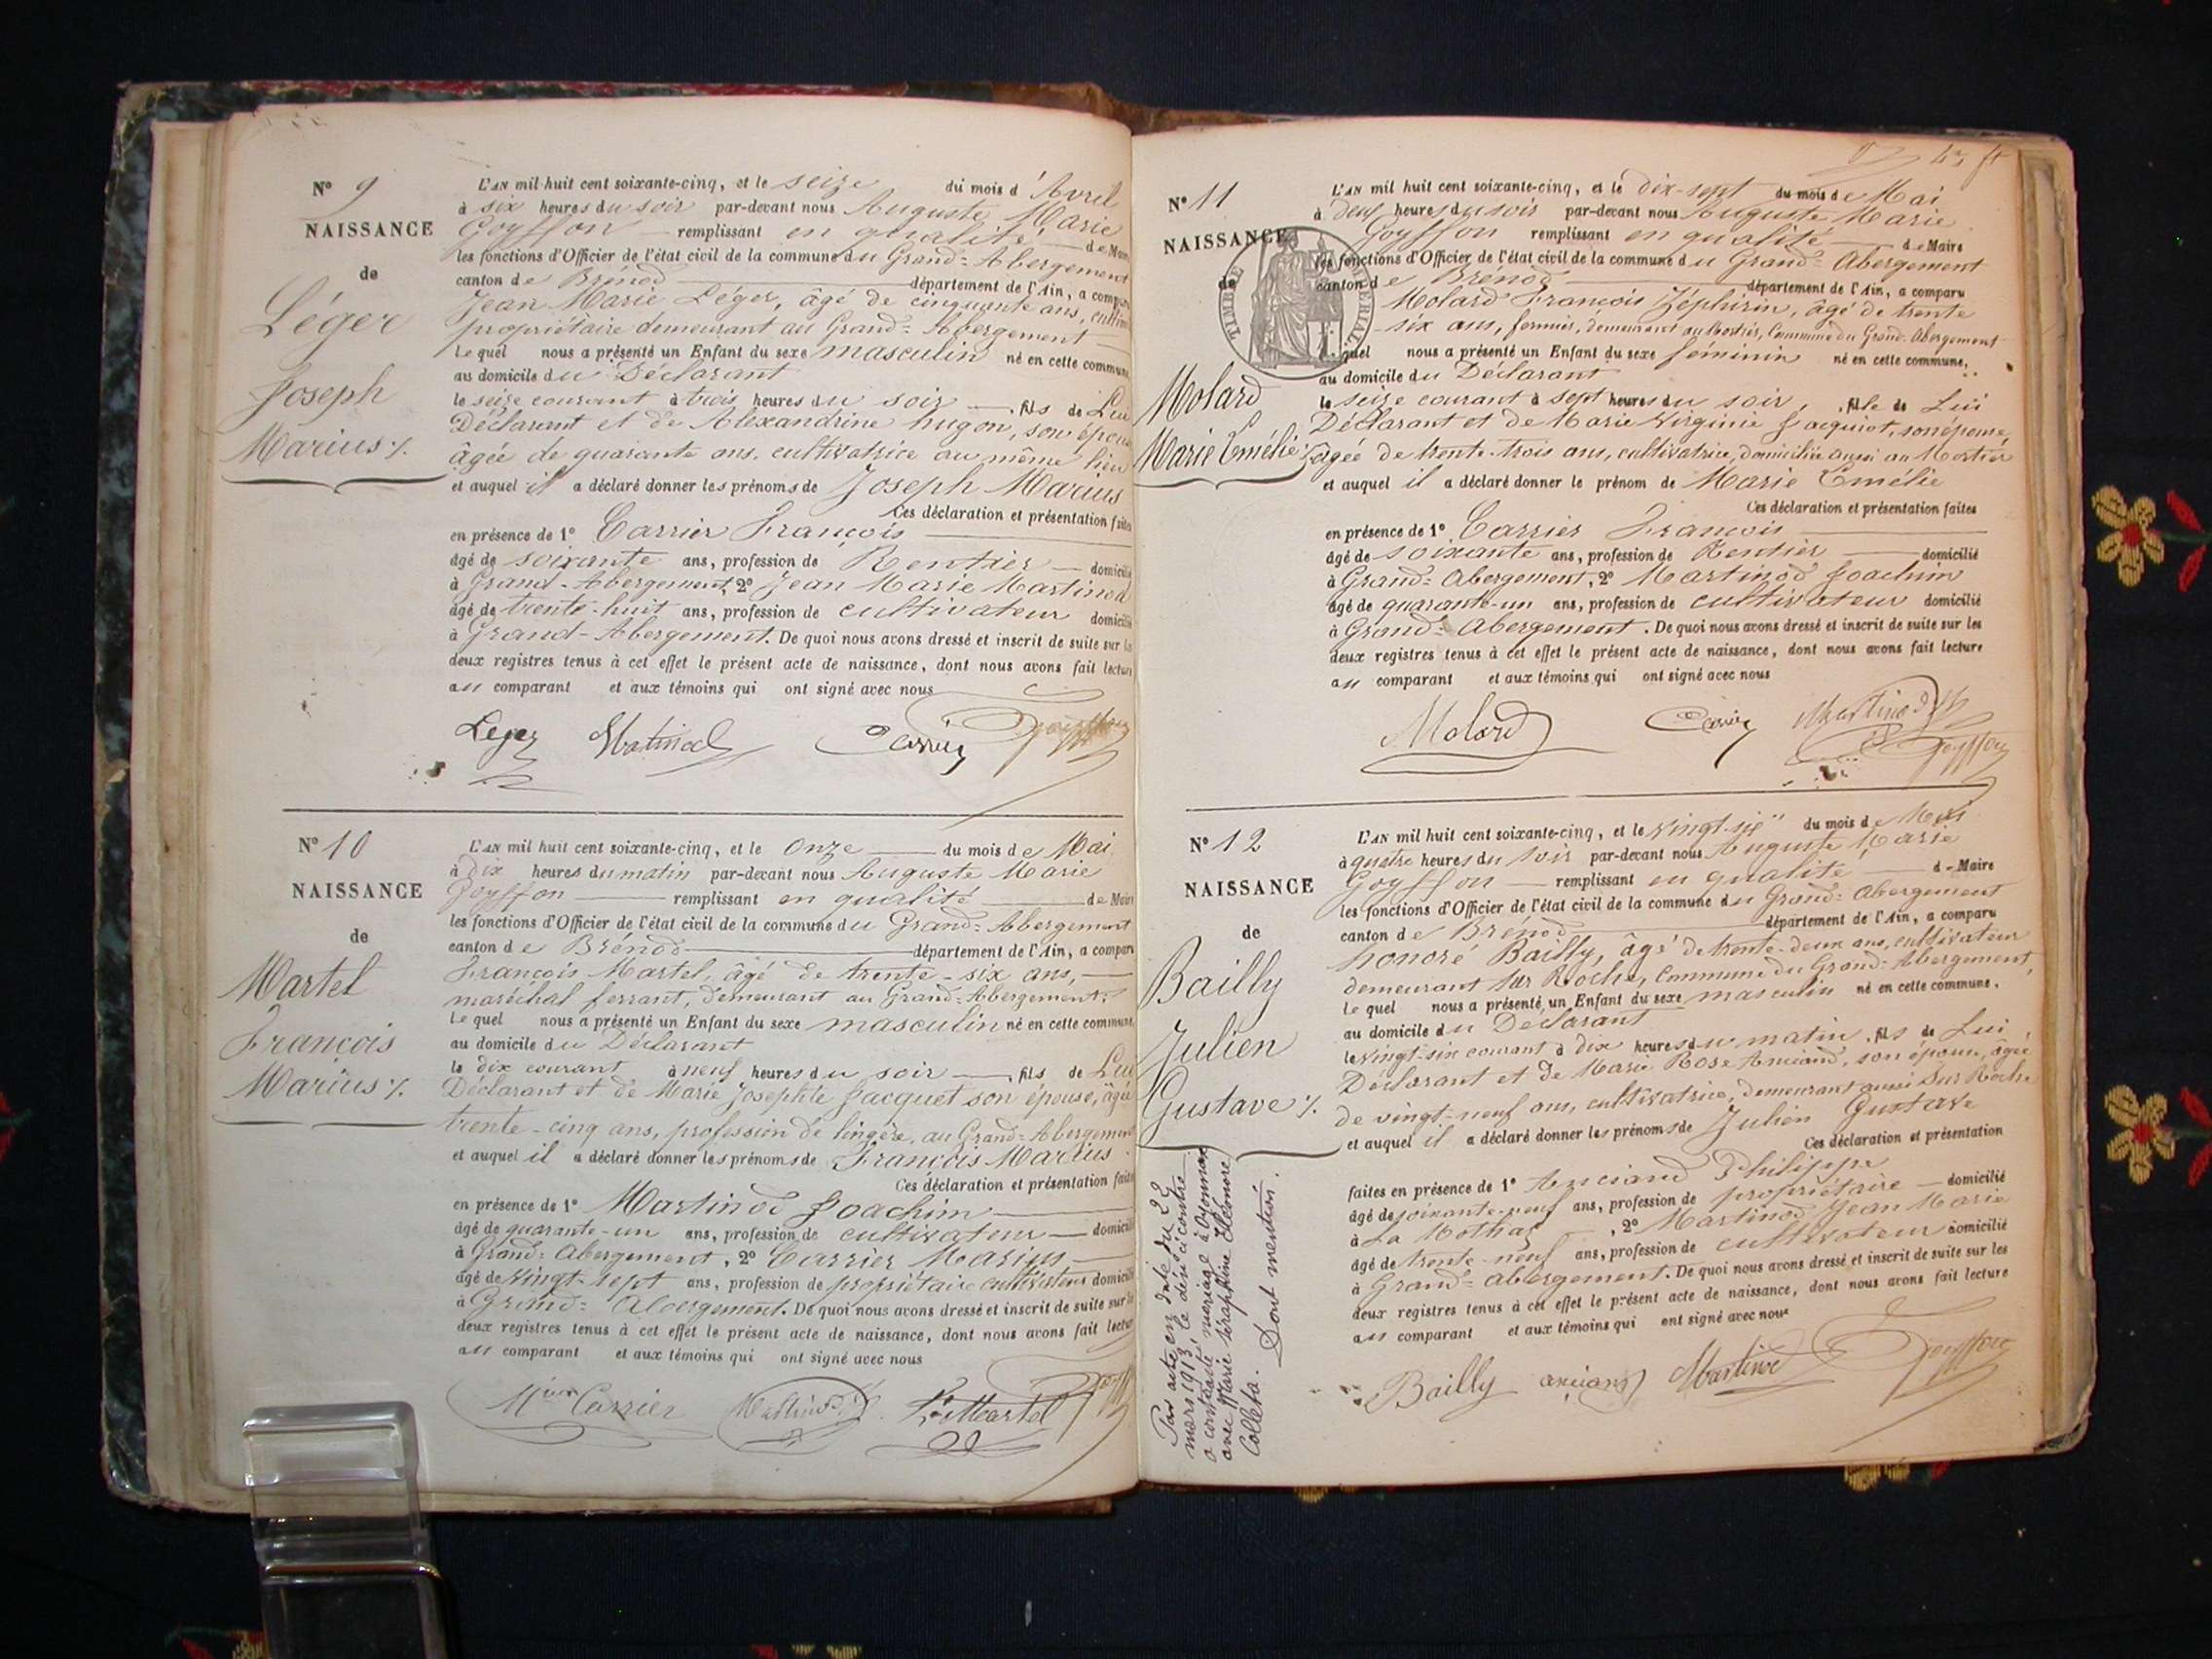 N° 9
NAISSANCE
de
Léger
Joseph
Marius
L'AN mil huit cent soixante-cinq, et le seize du mois d'Avril
à six heures du soir par-devant nous Auguste Marie
Goyffon remplissant en qualité de Maire
les fonctions d'Officier de l'état civil de la commune du Grand-Abergement
canton de Brénod département de l'Ain, a comparu
Jean Marie Léger, âgé de cinquante ans,
propriétaire demeurant au Grand-Abergement
Lequel nous a présenté un Enfant du sexe masculin né en cette commune,
au domicile du Déclarant
le seize courant à trois heures du soir, fils de Lui
Déclarant et de Alexandrine hugon, son épouse
âgée de quarante ans, cultivatrice au même lieu
et auquel il a déclaré donner les prénoms de Joseph Marius
Ces déclaration et présentation faites
en présence de 1° Carrier François
âgé de soixante ans, profession de Rentier domicilié
à Grand-Abergement, 2° Jean Marie Martinod
âgé de trente-huit ans, profession de cultivateur domicilié
à Grand-Abergement. De quoi nous avons dressé et inscrit de suite sur les
deux registres tenus à cet effet le présent acte de naissance, dont nous avons fait lecture
au comparant et aux témoins qui ont signé avec nous
Leger Martinod Carrier Goyffon
N° 10
NAISSANCE
de
Martel
François
Marius
L'AN mil huit cent soixante-cinq, et le onze du mois de Mai
à dix heures du matin par-devant nous Auguste Marie
Goyffon remplissant en qualité de Maire
les fonctions d'Officier de l'état civil de la commune du Grand-Abergement
canton de Brénod département de l'Ain, a comparu
François Martel, âgé de trente-six ans,
maréchal ferrant, demeurant au Grand-Abergement.
Lequel nous a présenté un Enfant du sexe masculin né en cette commune,
au domicile du Déclarant
le dix courant à neuf heures du soir, fils de Lui
Déclarant et de Marie Josephte Jacquet son épouse, âgée
trente-cinq ans, profession de lingère, au Grand-Abergement
et auquel il a déclaré donner les prénoms de François Marius
Ces déclaration et présentation faites
en présence de 1° Martinod Joachim
âgé de quarante-un ans, profession de cultivateur domicilié
à Grand-Abergement, 2° Carrier Marius
âgé de vingt-sept ans, profession de propriétaire cultivateur domicilié
à Grand-Abergement. De quoi nous avons dressé et inscrit de suite sur les
deux registres tenus à cet effet le présent acte de naissance, dont nous avons fait lecture
au comparant et aux témoins qui ont signé avec nous
Carrier Martinod Martel
N° 11
NAISSANCE
de
TIMBRE IMPÉRIAL
Molard
Marie Emélie
L'AN mil huit cent soixante-cinq, et le dix-sept du mois de Mai
à deux heures du soir par-devant nous Auguste Marie
Goyffon remplissant en qualité de Maire
les fonctions d'Officier de l'état civil de la commune du Grand-Abergement
canton de Brénod département de l'Ain, a comparu
Molard François Zéphirin, âgé de trente
-six ans, fermier, demeurant au Mortier, Commune du Grand-Abergement
Lequel nous a présenté un Enfant du sexe féminin né en cette commune,
au domicile du Déclarant
le seize courant à sept heures du soir, fille de Lui
Déclarant et de Marie Virginie Jacquiot, son épouse,
âgée de trente-trois ans, cultivatrice, domiciliée aussi au Mortier
et auquel il a déclaré donner le prénom de Marie Emélie
Ces déclaration et présentation faites
en présence de 1° Carrier François
âgé de soixante ans, profession de Rentier domicilié
à Grand-Abergement, 2° Martinod Joachim
âgé de quarante-un ans, profession de cultivateur domicilié
à Grand-Abergement. De quoi nous avons dressé et inscrit de suite sur les
deux registres tenus à cet effet le présent acte de naissance, dont nous avons fait lecture
au comparant et aux témoins qui ont signé avec nous
Molard Carrier Martinod Goyffon
N° 12
NAISSANCE
de
Bailly
Julien
Gustave
Par acte en date du 22
mars 1913, le dénoi ci contre
a contracté mariage à Oyonnax
avec Marie Séraphine Eléonore
Colletta. Dont mention.
L'AN mil huit cent soixante-cinq, et le vingt-six du mois de Mai
à quatre heures du soir par-devant nous Auguste Marie
Goyffon remplissant en qualité de Maire
les fonctions d'Officier de l'état civil de la commune du Grand-Abergement
canton de Brénod département de l'Ain, a comparu
honoré Bailly, âgé de trente-deux ans, cultivateur
demeurant sur Roche, Commune du Grand-Abergement,
Lequel nous a présenté un Enfant du sexe masculin né en cette commune,
au domicile du Déclarant
le vingt-six courant à dix heures du matin, fils de Lui
Déclarant et de Marie Rose Anciand, son épouse, âgée
de vingt-neuf ans, cultivatrice, demeurant aussi Sur Roche
et auquel il a déclaré donner les prénoms de Julien Gustave
Ces déclaration et présentation
faites en présence de 1° Anciand Philippe
âgé de soixante-neuf ans, profession de propriétaire domicilié
à La 2° Martinod Jean Marie
âgé de trente-neuf ans, profession de cultivateur domicilié
à Grand-Abergement. De quoi nous avons dressé et inscrit de suite sur les
deux registres tenus à cet effet le présent acte de naissance, dont nous avons fait lecture
au comparant et aux témoins qui ont signé avec nous
Bailly anciand Martinod Goyffon